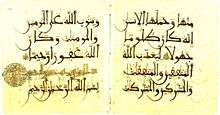 منها وحملها الانسن
انه كان ظلوما
جهولا ليعذب الله
المنفقين والمنفقت
والمشركين والمشركت
ويتوب الله على المؤمنين
والمؤمنت وكان
الله غفورا رحيما
بسم الله الرحمن الرحيم